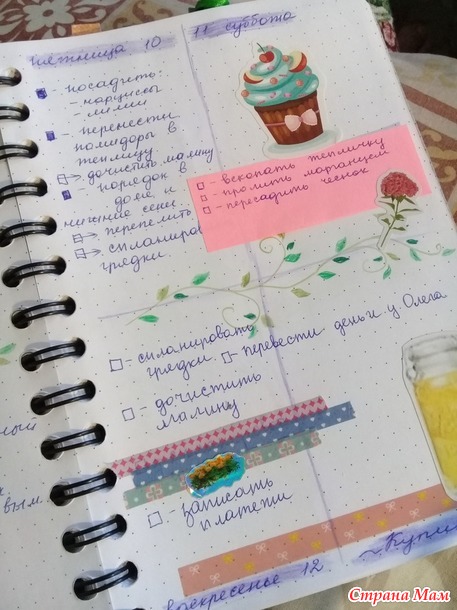 пятница 10
- посадить:
- нарциссы
- лилии
- перенести
помидоры в
теплицу
- дочистить малину
- порядок в
доме и
нижние сени
- перепелить
- спланиров
грядки.
11 суббота
- вскопать тепличку
- пролить марганцем
- пересадить чеснок
- спланировать
грядки.
- перевести деньги у Олега
- дочистить
малину
- записать
платежи
воскресенье 12
~Купи
ный
вым.
Страна Мам